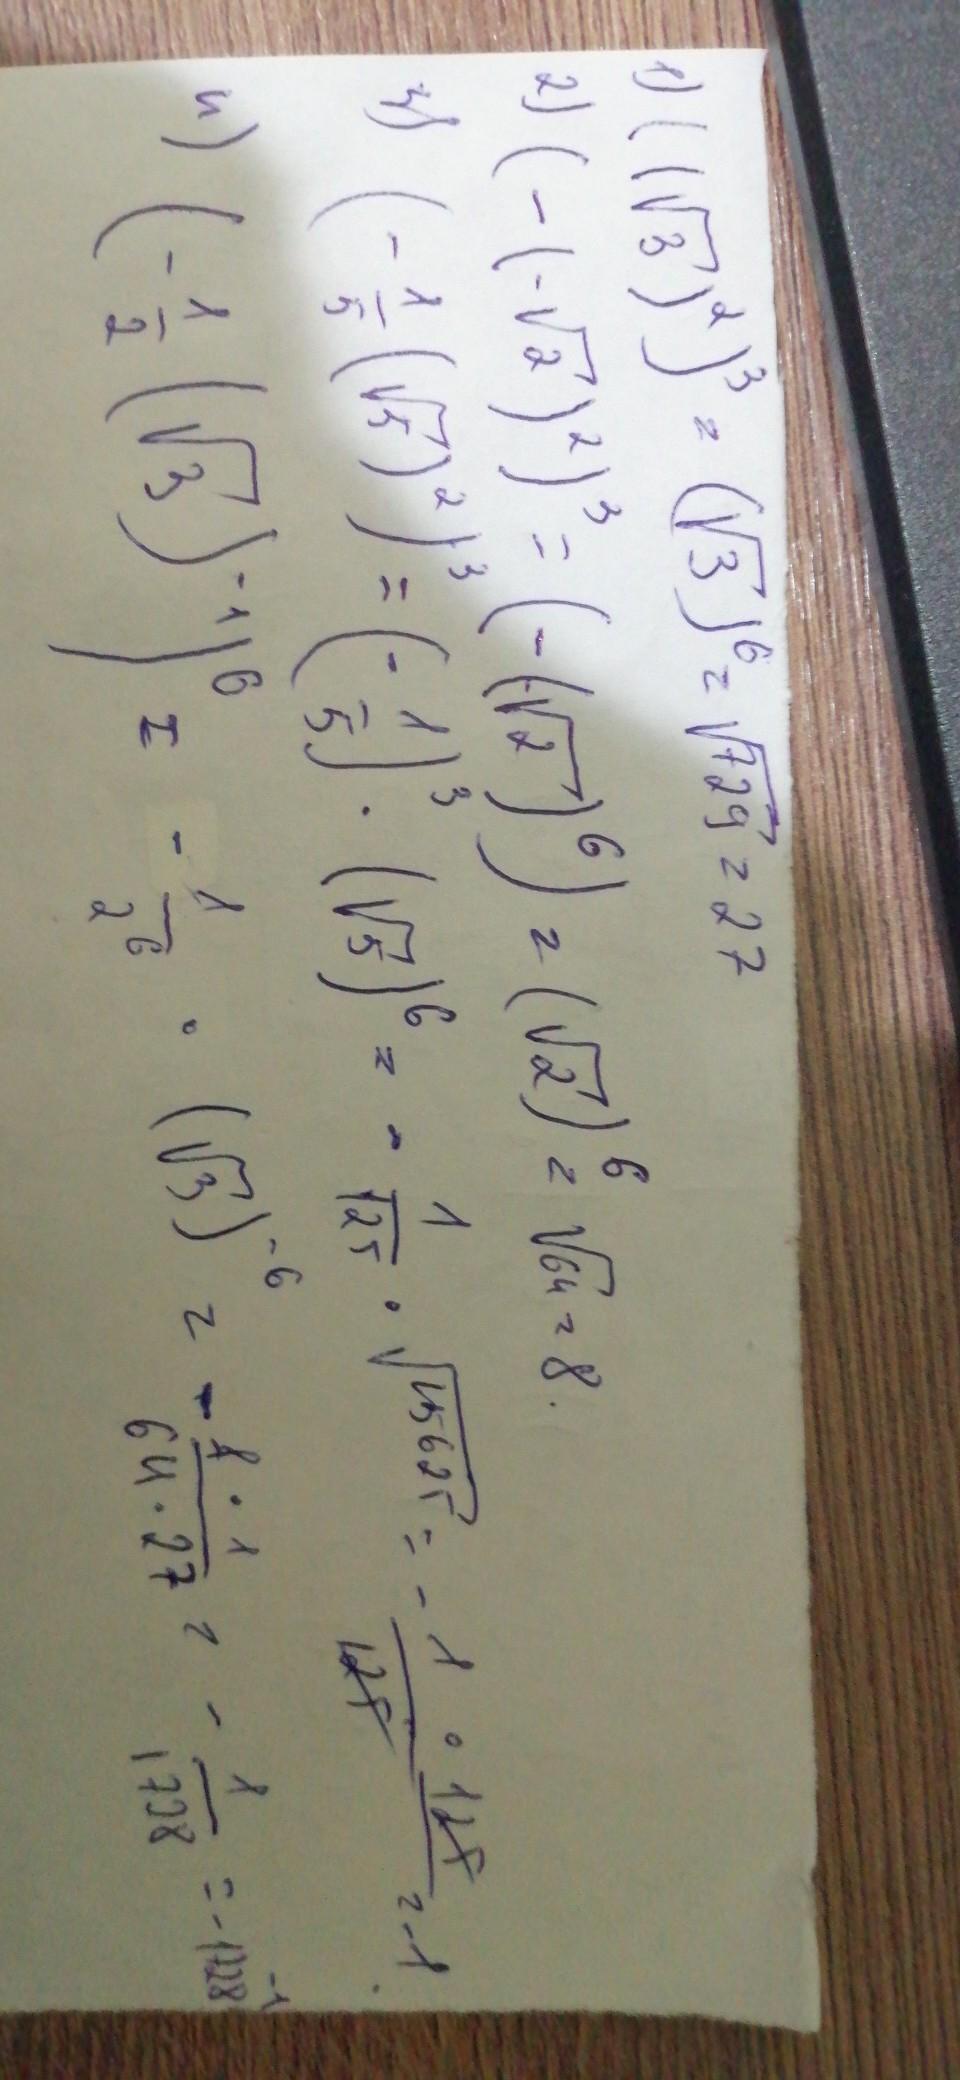 1) ((√3)²)³ = (√3)⁶ = √729 = 27
2) (-(-√2)²)³ = (-(√2)⁶) = (√2)⁶ = √64 = 8.
3) (-1/5 (√5)²)³ = (-1/5)³ · (√5)⁶ = -1/125 · √15625 = - 1 · 125/125 = -1.
4) (-1/2 (√3)⁻¹)⁶ = -1/2⁶ · (√3)⁻⁶ = - 1 · 1/64 · 27 = - 1/1728 = -1728⁻¹